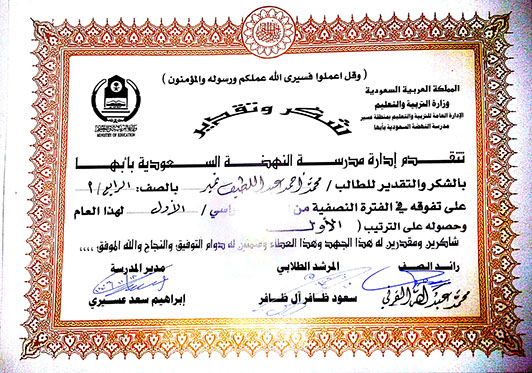 ( وقل اعملوا فسيرى الله عملكم ورسوله والمؤمنون )
المملكة العربية السعودية
وزارة التربية والتعليم
الإدارة العامة للتربية والتعليم بمنطقة عسير
مدرسة النهضة السعودية بأبها
وزارة التربية والتعليم
MINISTRY OF EDUCATION
شكر وتقدير
تتقدم إدارة مدرسة النهضة السعودية بأبها
بالشكر والتقدير للطالب / محمد أحمد عبد اللطيف بالصف: الرابع / ٢
على تفوقه في الفترة النصفية من راسي / الأول لهذا العام
وحصوله على الترتيب ( الأول
شاكرين ومقدرين له هذا الجهد وهذا العطاء ومتمنين له دوام التوفيق والنجاح والله الموفق ،،،،
رائد الصف
المرشد الطلابي
مدير المدرسة
محمد عبد الله القرني
سعود ظافر آل ظافر
إبراهيم سعد عسيري